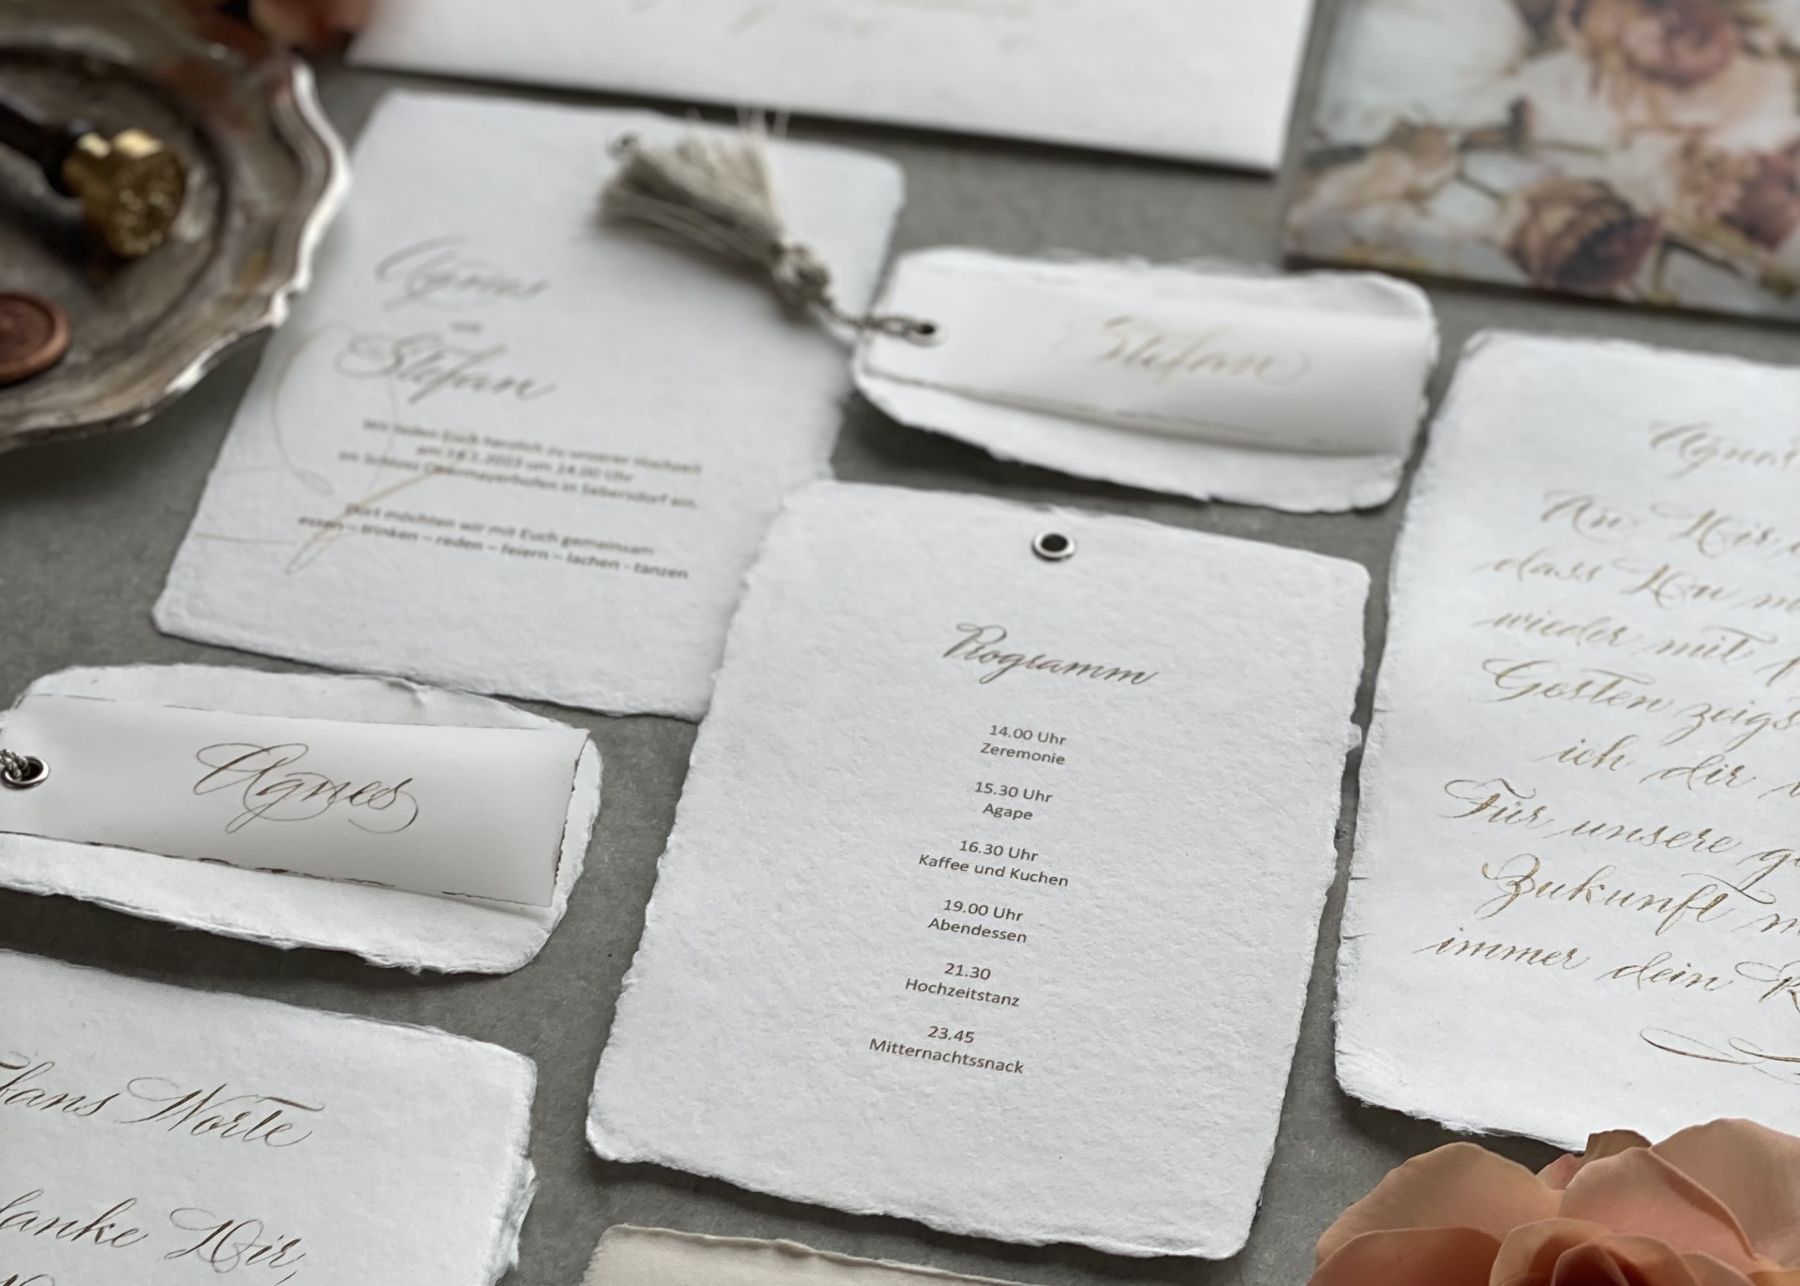 Agnes
und
Stefan
Wir laden Euch herzlich zu unserer Hochzeit
2023 um 14.00 Uhr
im Schloss Obermayerhofen in Sebersdorf ein.
Dort möchten wir mit Euch gemeinsam
essen – trinken – reden – feiern – lachen - tanzen
Stefan
Agnes
Programm
14.00 Uhr
Zeremonie
15.30 Uhr
Agape
16.30 Uhr
Kaffee und Kuchen
19.00 Uhr
Abendessen
21.30
Hochzeitstanz
23.45
Mitternachtssnack
Agnes
An Dir
dass Du
wieder mit
Gesten zeigs
ich dir
Für unsere
Zukunft
immer dein
fans Worte
danke Dir,